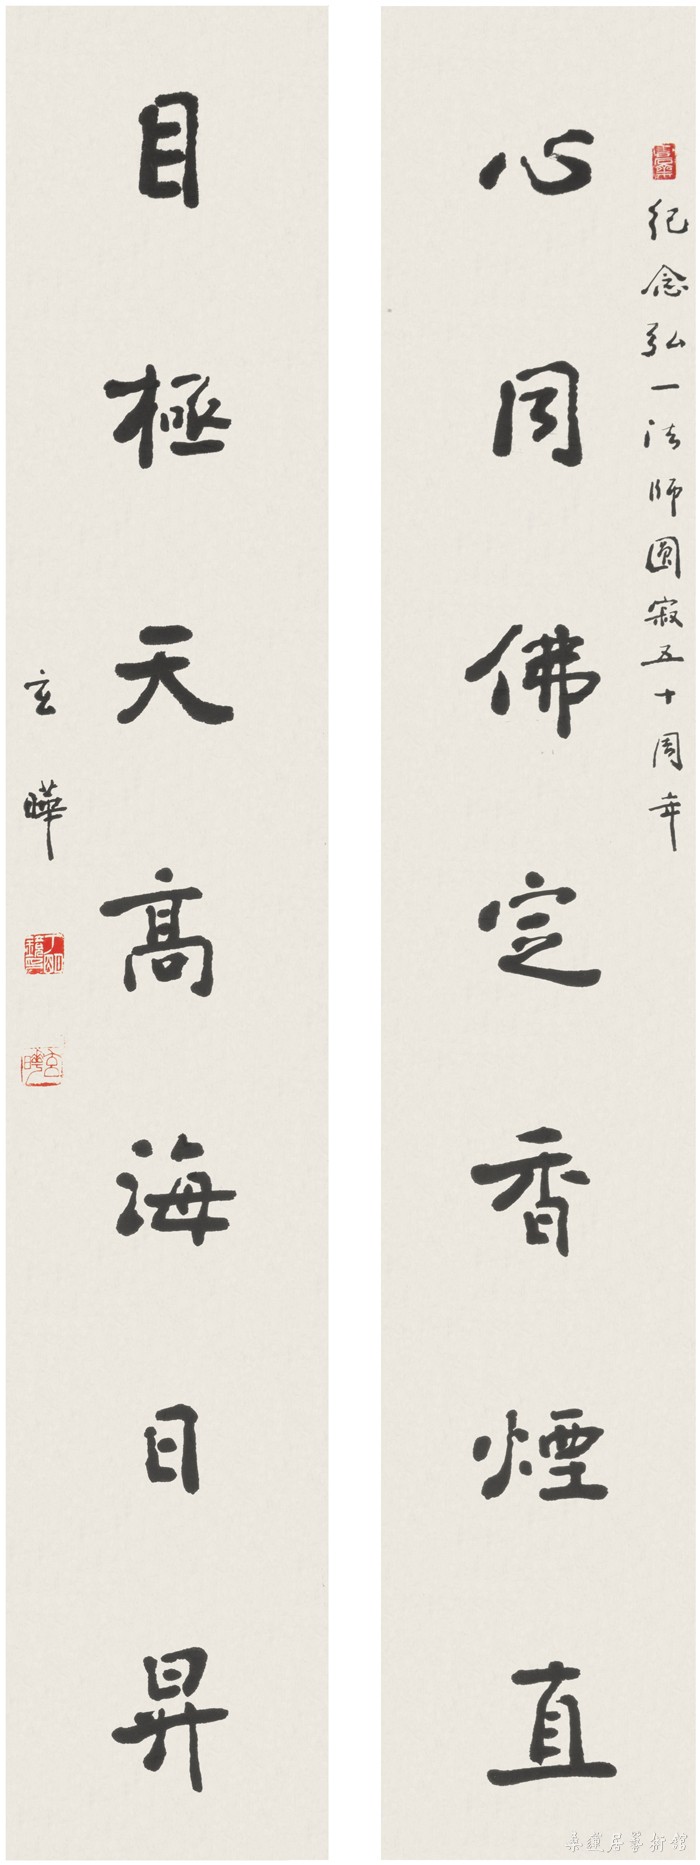 紀念弘一法師圓寂五十周年
心同佛定香煙直
目極天高海日昇
玄曄
玄曄
桑蓮居藝術館